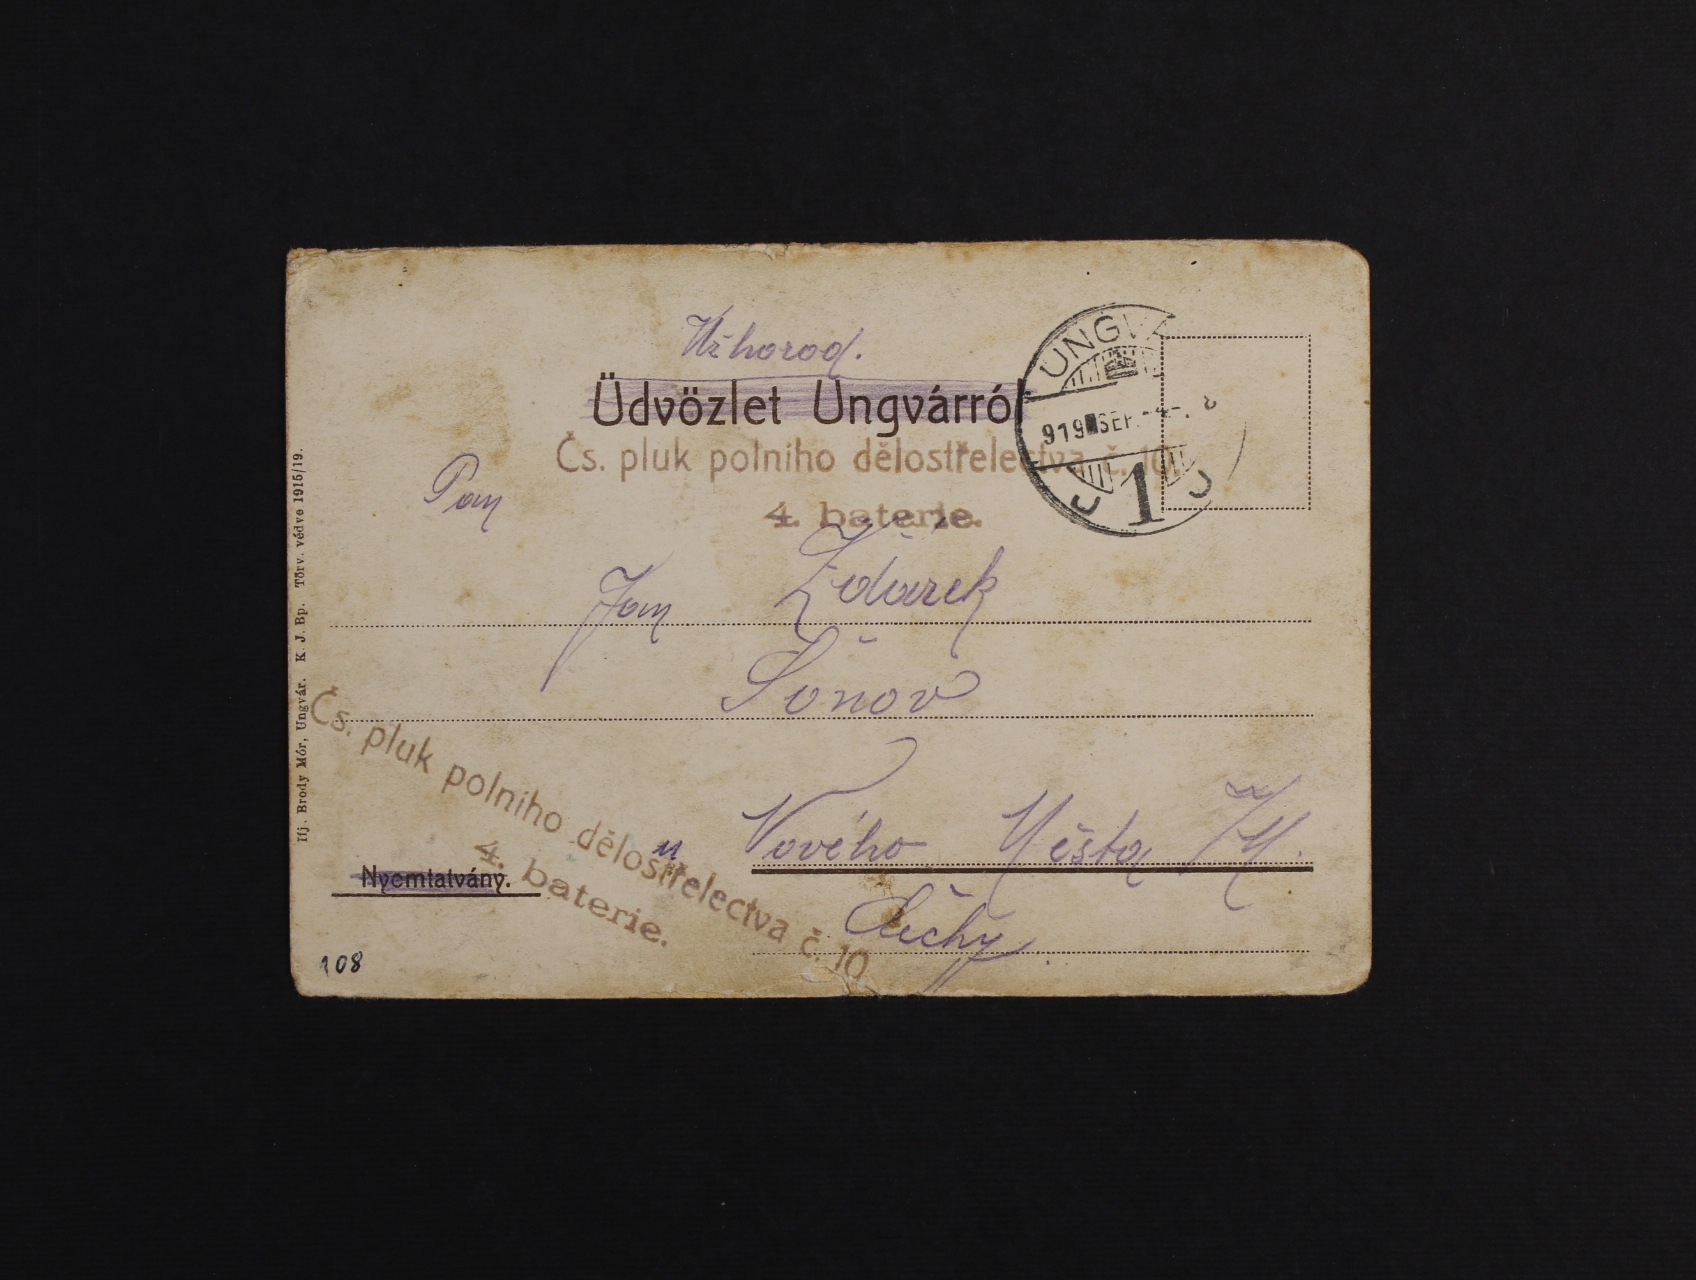 Užhorod.
Üdvözlet Ungvárról
UNGVÁ
919 SEP. -4
1
Čs. pluk polniho dělostřelectva č. 10.
4. baterie.
Pan
Jan Žďárek
Šonov
u Nového Města
Čechy
Čs. pluk polniho dělostřelectva č. 10
4. baterie.
Nyomtatvány.
108
Ifj. Brody Mór, Ungvár. K. J. Bp. Törv. védve 1915/19.